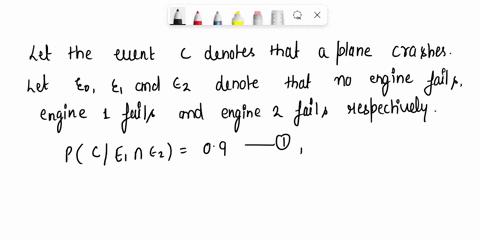 Let the event C denotes that a plane crashes.
Let E0, E1 and E2 denote that no engine fails,
engine 1 fails and engine 2 fails respectively.
P(C/E1∩E2) = 0.9 —①,